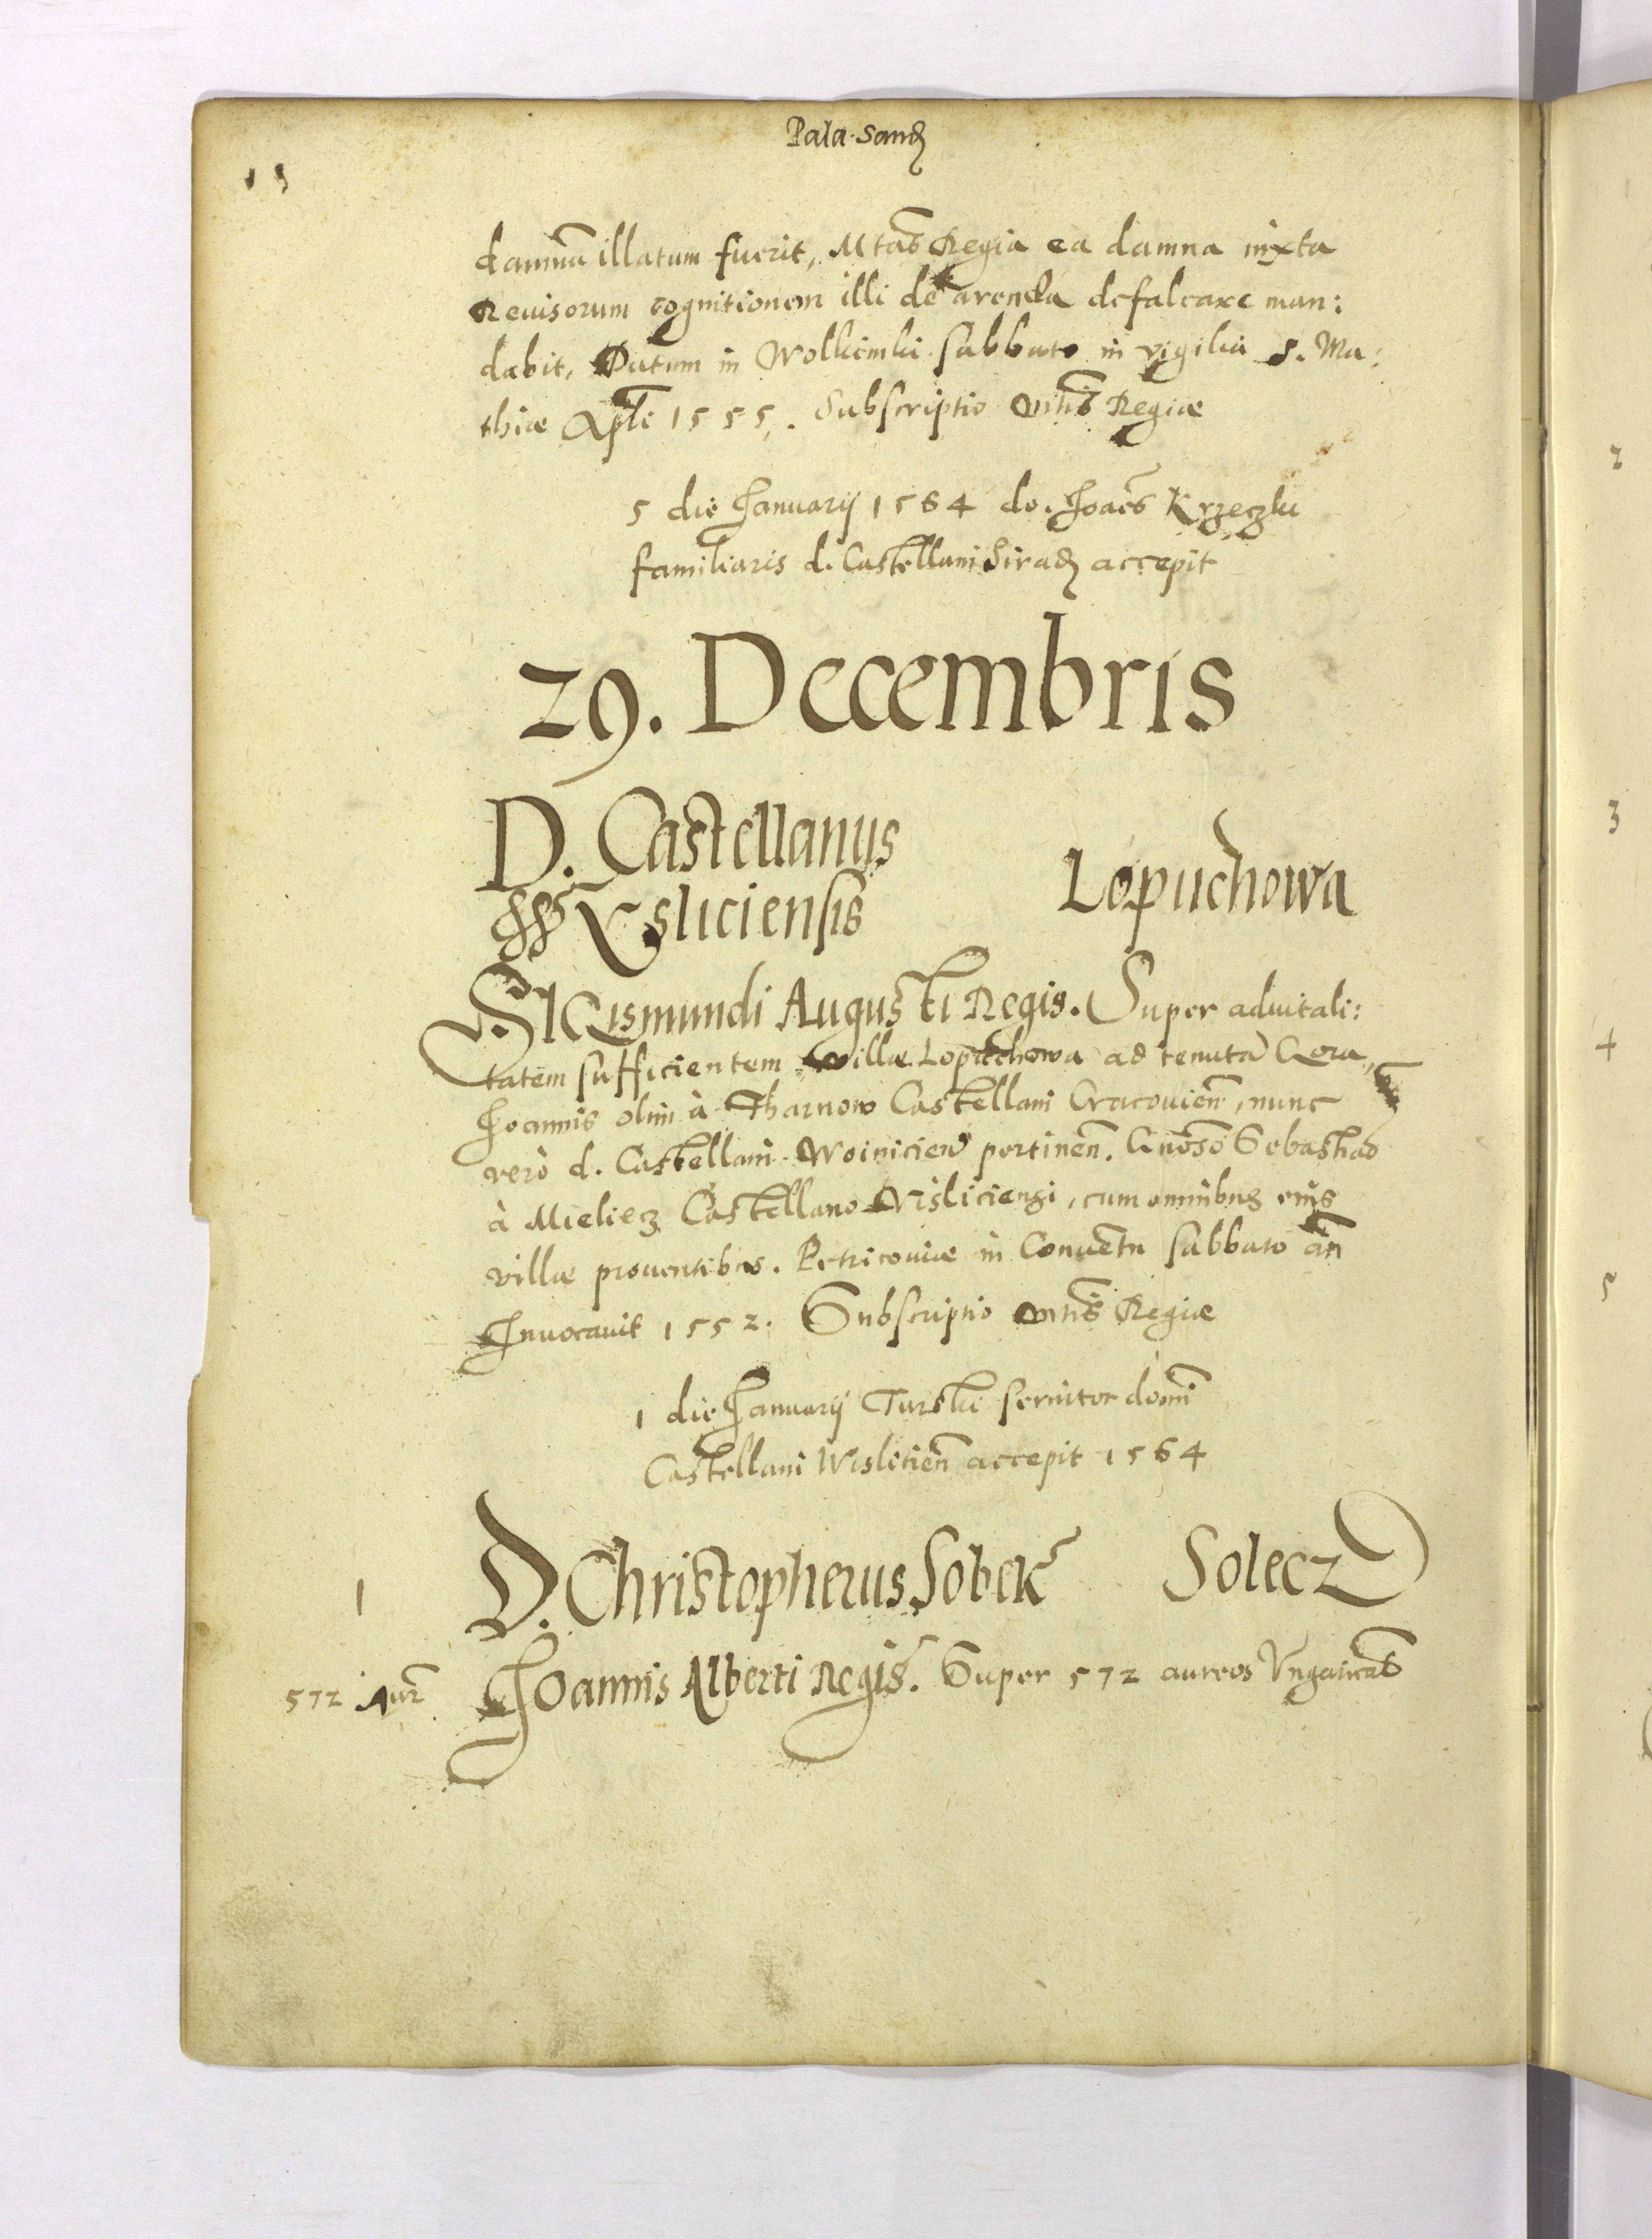 Pala. Sand
damna illatum fuerit, Mtas Regia ea damna iuxta
Reuisorum cognitionem illi de arenda defalcare man:
dabit. Datum in Wolkiniki sabbato in vigilia S. Ma:
thiæ Apli 1555. Subscriptio Mtis Regiæ
5 die Januarij 1564 do. Joaes Krzeczki
familiaris d. Castellani Sirad accepit
29. Decembris
D. Castellanus
Vysliciensis
Lopuchowa
SIGismundi Augusti Regis. Super aduitali:
tatem sufficientem villæ Lopuchowa ad tenuta
Joannis olim à Tharnow Castellani Cracouien, nunc
verò d. Castellani Woinicien pertinen. Gnoso Sebastiao
à Mieliecz Castellano Visliciensi, cum omnibus eius
villæ prouentibus. Petricouiæ in Conuetu sabbato an
Inuocauit 1552. Subscriptio Mtis Regiæ
1 die Januarij Turski seruitor domi
Castellani Wislicien accepit 1564
1
D. Christopherus Sobek
Solecz
572 Aur
Joannis Alberti Regis. Super 572 aureos Vngaricas
2
3
4
5